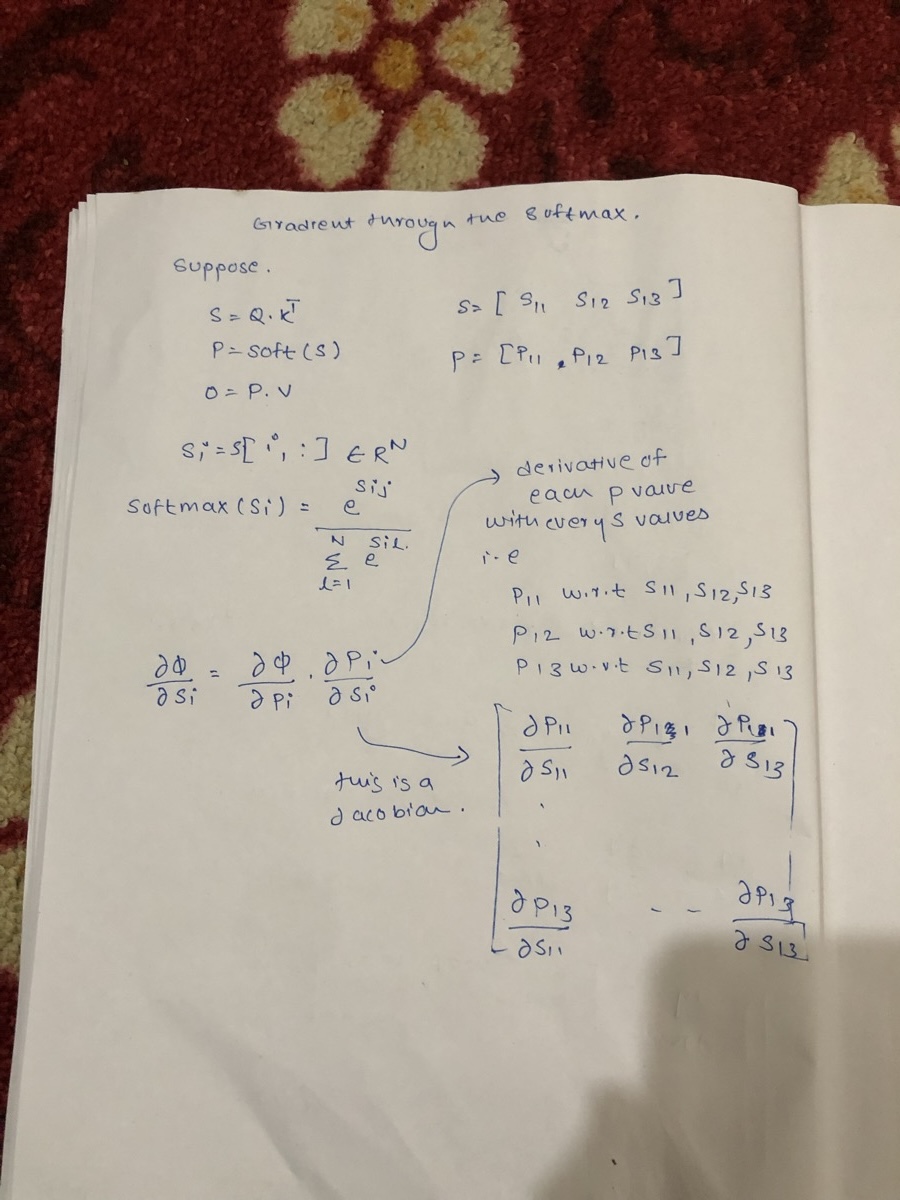 Gradient through the softmax.
Suppose.
S = Q.K^T
P = soft(S)
O = P.V
S = [ S11 S12 S13 ]
P = [P11 , P12 P13 ]
Si = S[ i, : ] ∈ R^N
softmax(Si) = e^Sij / N Σ l=1 e^Sil.
∂Φ/∂Si = ∂Φ/∂Pi . ∂Pi/∂Si
derivative of
each p value
with every S values
i.e
P11 w.r.t S11, S12, S13
P12 w.r.t S11, S12, S13
P13 w.r.t S11, S12, S13
this is a
Jacobian.
∂P11/∂S11 ∂P11/∂S12 ∂P11/∂S13
.
.
∂P13/∂S11 - - ∂P13/∂S13